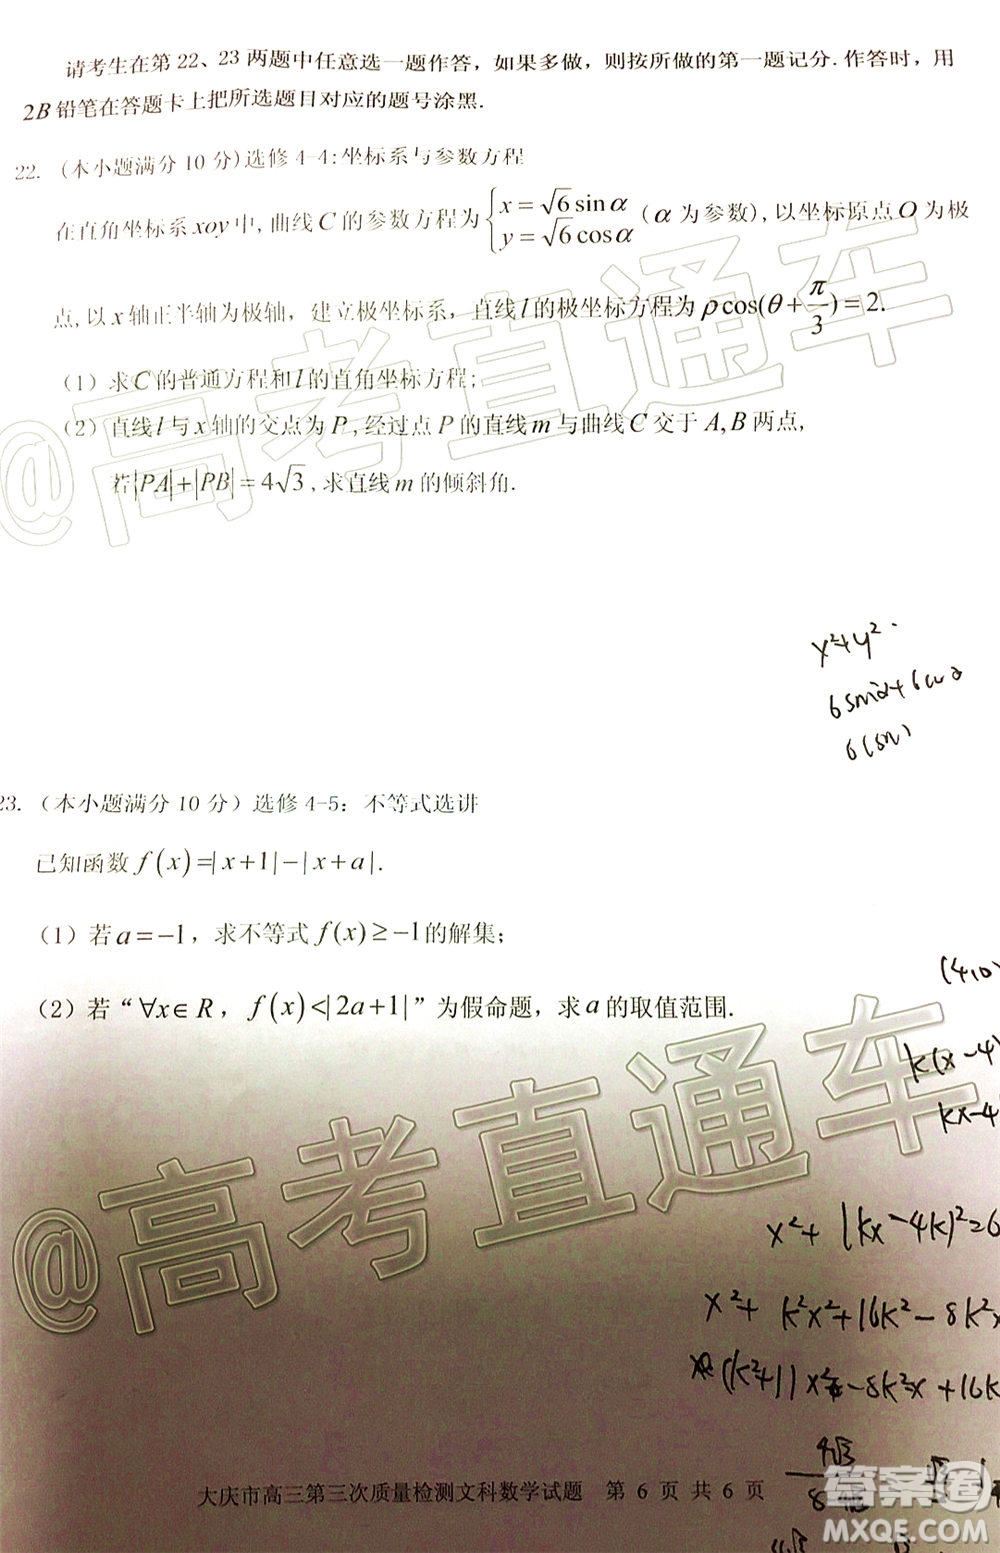 请考生在第 22、23 两题中任意选一题作答，如果多做，则按所做的第一题记分. 作答时，用
2B 铅笔在答题卡上把所选题目对应的题号涂黑.
22. (本小题满分 10 分) 选修 4-4: 坐标系与参数方程
在直角坐标系 xoy 中, 曲线 C 的参数方程为 { x = √6 sin α
y = √6 cos α (α 为参数), 以坐标原点 O 为极
点, 以 x 轴正半轴为极轴，建立极坐标系，直线 l 的极坐标方程为 ρcos(θ + π/3) = 2.
（1）求 C 的普通方程和 l 的直角坐标方程；
（2）直线 l 与 x 轴的交点为 P , 经过点 P 的直线 m 与曲线 C 交于 A, B 两点，
若 |PA| + |PB| = 4√3 , 求直线 m 的倾斜角.
x²+y²
6(sin
23. （本小题满分 10 分）选修 4-5：不等式选讲
已知函数 f(x) =| x+1 | − | x+a | .
（1）若 a = −1，求不等式 f(x) ≥ −1 的解集；
（2）若“ ∀x ∈ R， f(x) <| 2a+1 | ”为假命题，求 a 的取值范围.
(4,0)
k(x-4)
kx-4
x²+(kx-4k)²=6
x²+ k²x²+16k²-8k²x
(k²+1)x²-8k²x+16k
4√3
大庆市高三第三次质量检测文科数学试题 第 6 页 共 6 页
@高考直通车
@高考直通车
答案圈
MXQE.COM